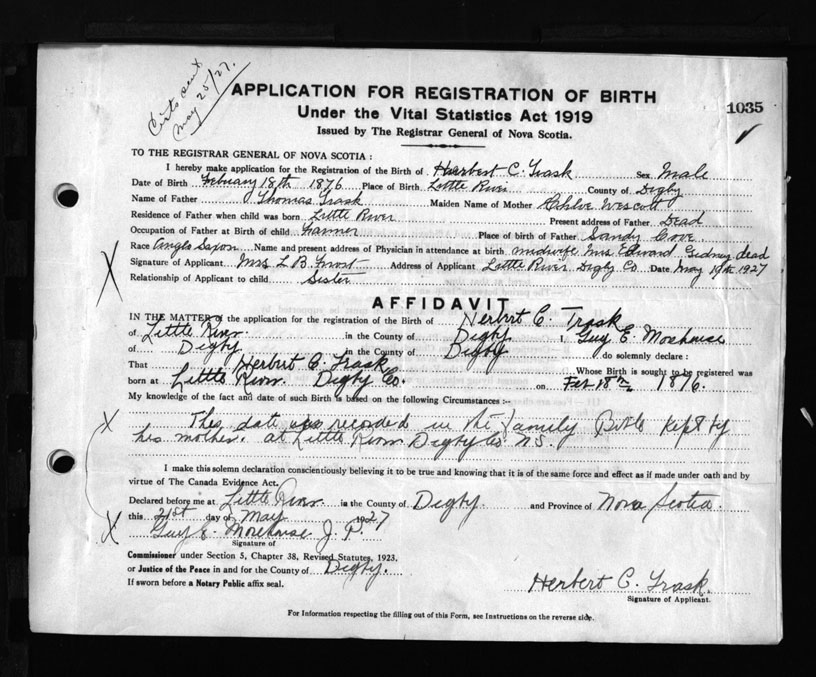 Certs sent
May 25/27.
APPLICATION FOR REGISTRATION OF BIRTH
Under the Vital Statistics Act 1919
1035
Issued by The Registrar General of Nova Scotia.
TO THE REGISTRAR GENERAL OF NOVA SCOTIA :
I hereby make application for the Registration of the Birth of Herbert C. Trask Sex Male
Date of Birth February 18th 1876 Place of Birth Little River County of Digby
Name of Father Thomas Trask Maiden Name of Mother Chloe Wescott
Residence of Father when child was born Little River Present address of Father Dead
Occupation of Father at Birth of child Farmer Place of birth of Father Sandy Cove
Race Anglo Saxon Name and present address of Physician in attendance at birth midwife Mrs Edward Gidney dead
Signature of Applicant Mrs L B Frost Address of Applicant Little River Digby Co Date May 19th 1927
Relationship of Applicant to child Sister
AFFIDAVIT
IN THE MATTER of the application for the registration of the Birth of Herbert C. Trask
of Little River in the County of Digby I, Guy E. Morehouse
of Digby in the County of Digby do solemnly declare :
That Herbert C. Trask Whose Birth is sought to be registered was
born at Little River Digby Co. on Feb 18th 1876.
My knowledge of the fact and date of such Birth is based on the following Circumstances :-
This date was recorded in the family Bible kept by
his mother. at Little River Digby Co N.S.
I make this solemn declaration conscientiously believing it to be true and knowing that it is of the same force and effect as if made under oath and by
virtue of The Canada Evidence Act.
Declared before me at Little River in the County of Digby and Province of Nova Scotia.
this 21st day of May 1927
Guy E. Morehouse J. P.
Signature of
Commissioner under Section 5, Chapter 38, Revised Statutes, 1923.
or Justice of the Peace in and for the County of Digby.
If sworn before a Notary Public affix seal.
Herbert C. Trask.
Signature of Applicant.
For Information respecting the filling out of this Form, see Instructions on the reverse side.